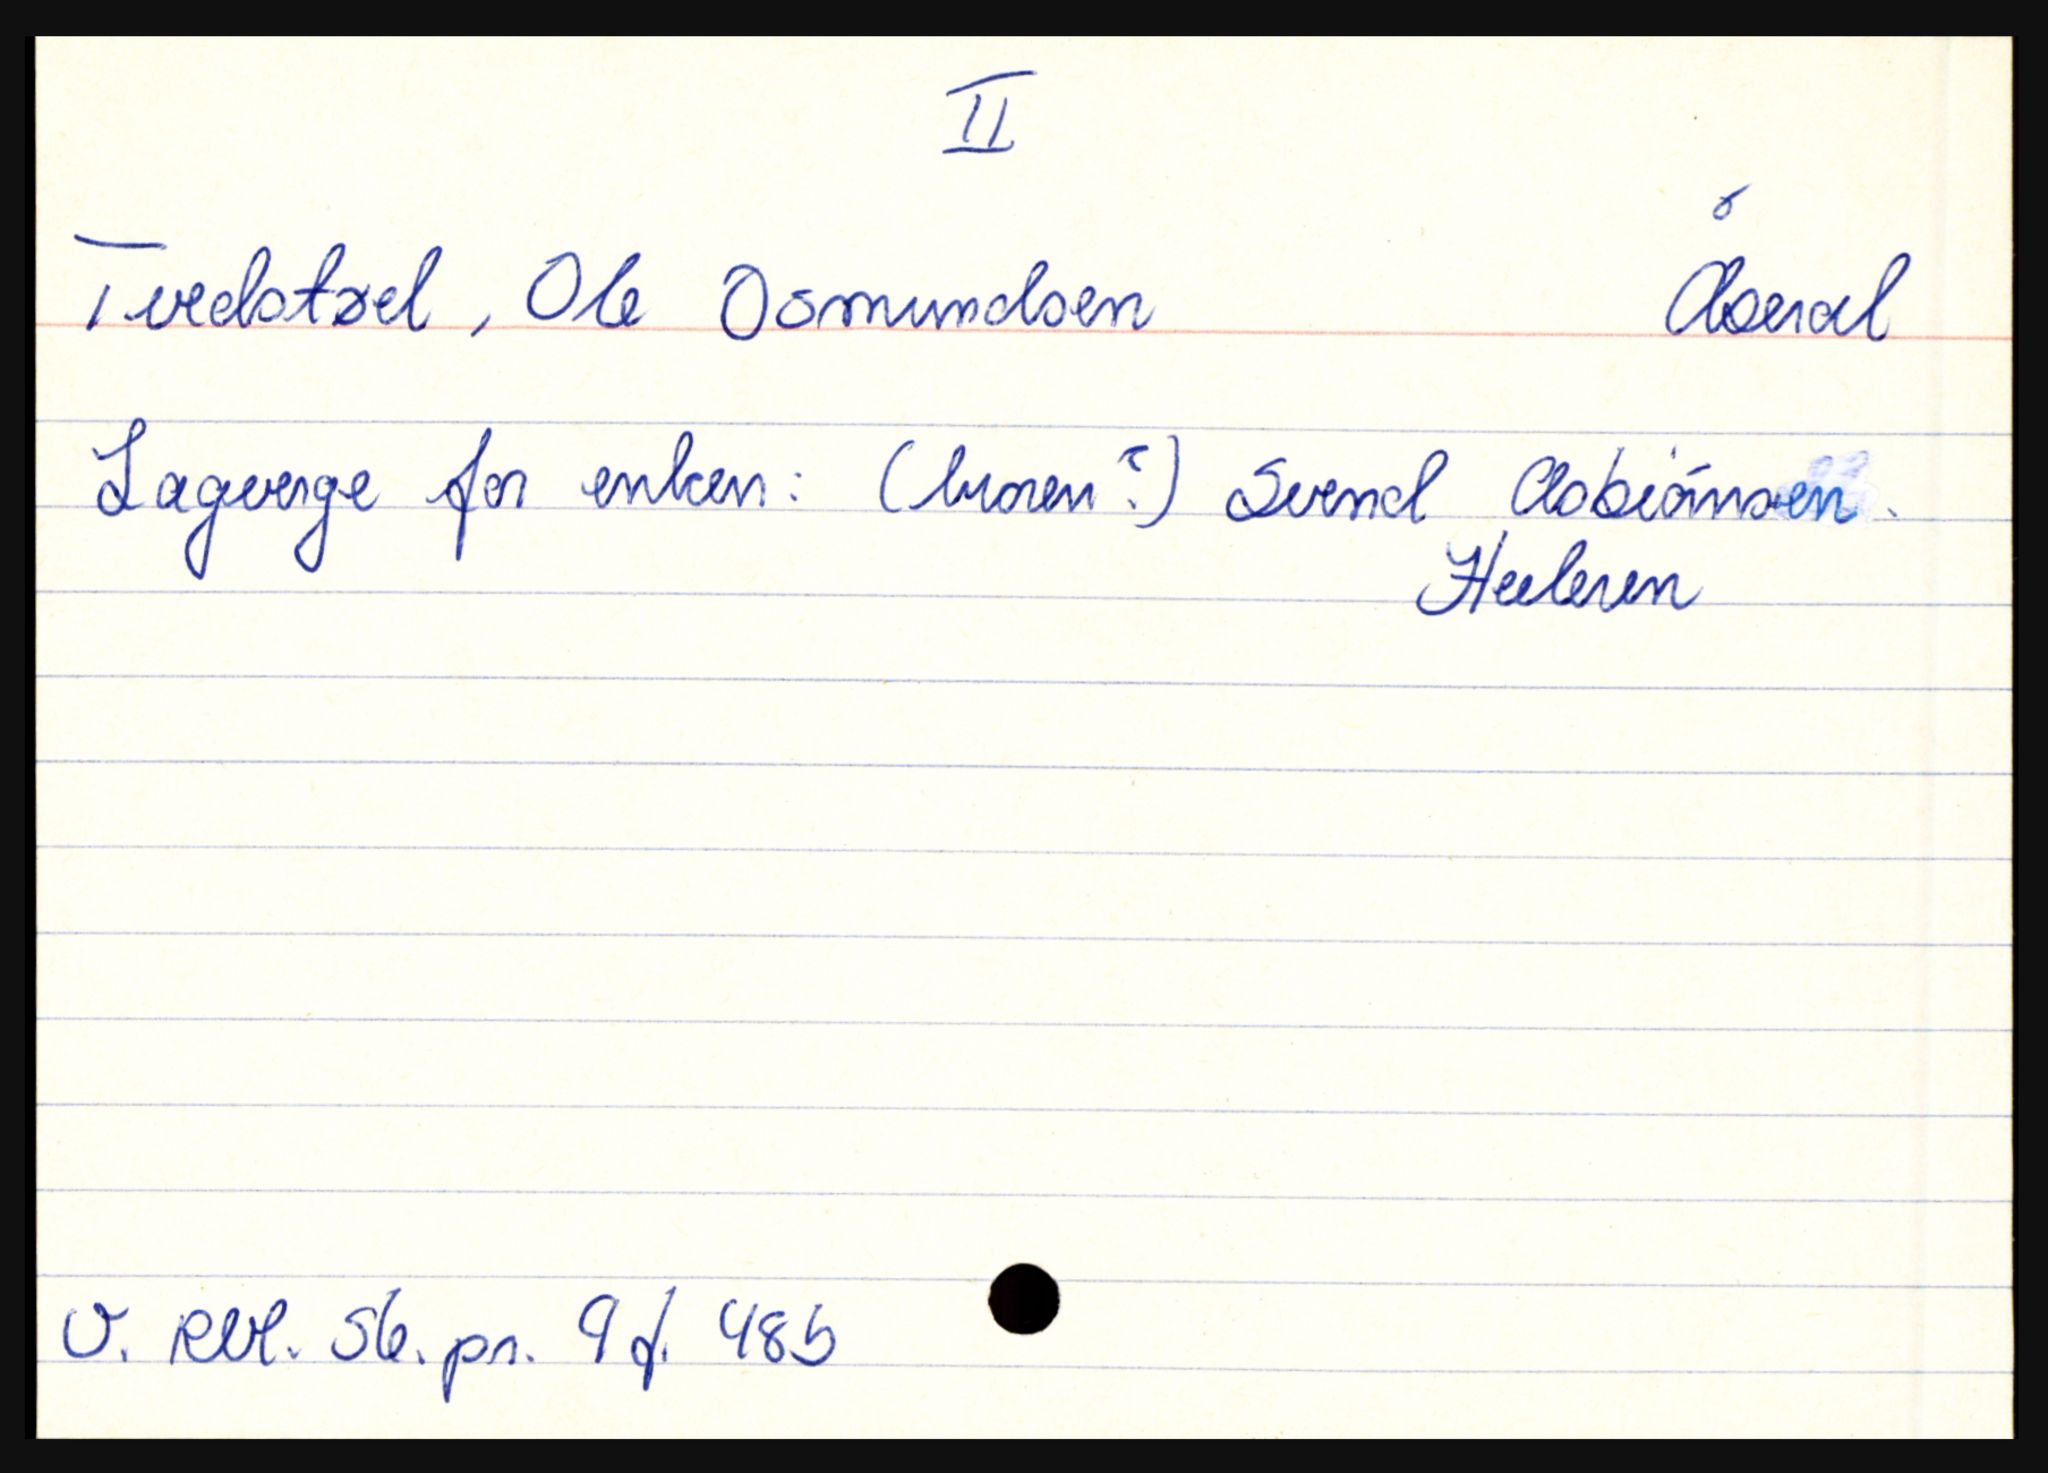 II
Tvedstøel, Ole Osmundsen Åseral
Lagverge for enken: (broren?) Svend Asbiønsen.
Heeleren
V. Rbl. Sk. pr. 9 f. 48b